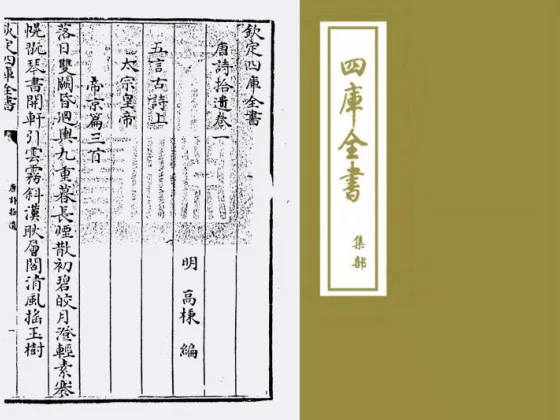 欽定四庫全書
唐詩拾遺卷一
明 高棅 編
五言古詩上
太宗皇帝
帝京篇三首
落日雙闕昏迴輿九重暮長煙散初碧皎月澄輕素搴
幌翫琴書開軒引雲霧斜漢耿層閣清風搖玉樹
欽定四庫全書
唐詩拾遺
一
四庫全書
集部